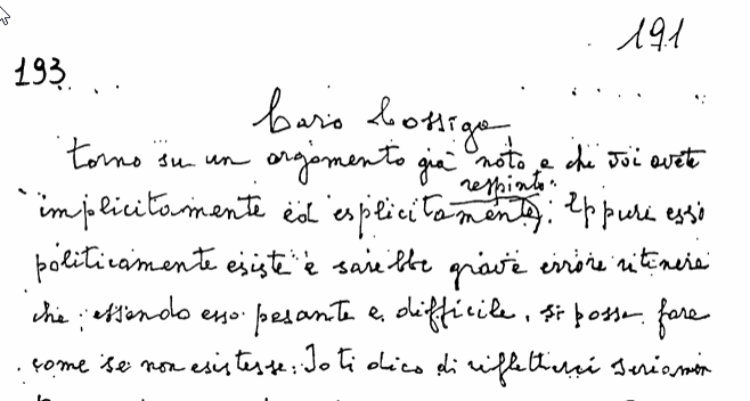 191
193
Caro Cossiga
torno su un argomento già noto e che voi avete
respinto.
implicitamente ed esplicitamente. Eppure esso
politicamente esiste e sarebbe grave errore ritenere
che, essendo esso pesante e difficile, si possa fare
come se non esistesse. Io ti dico di rifletterci seriamen